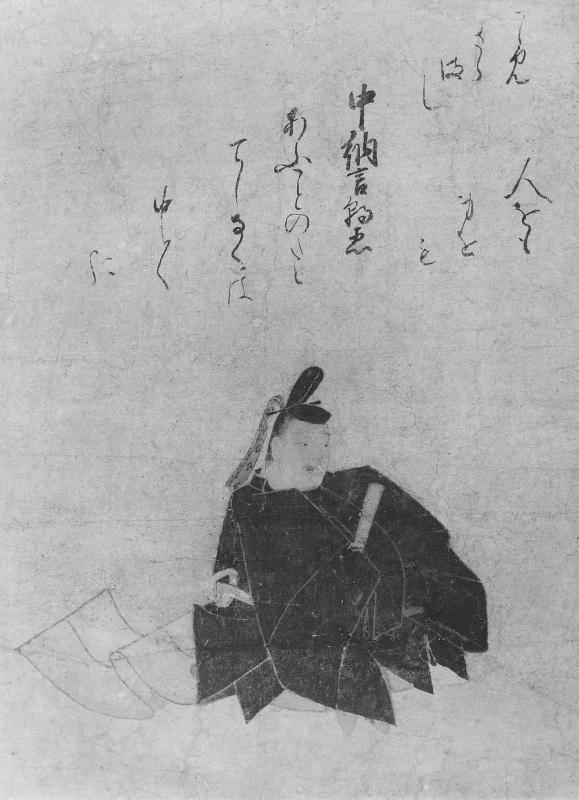 中納言朝忠
あふことのたえ
てしなくは
中〱
に
人をも
身を
も
うらみ
さら
まし